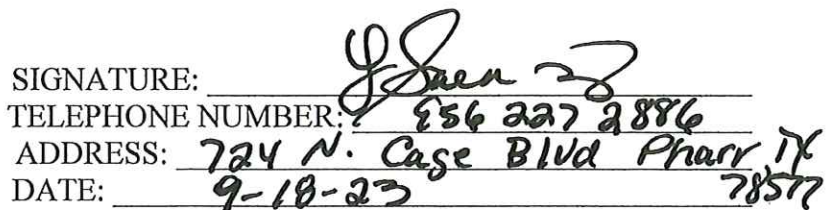 SIGNATURE: Y Saenz
TELEPHONE NUMBER: 956 227 2886
ADDRESS: 724 N. Cage Blvd Pharr, TX
78577
DATE: 9-18-23